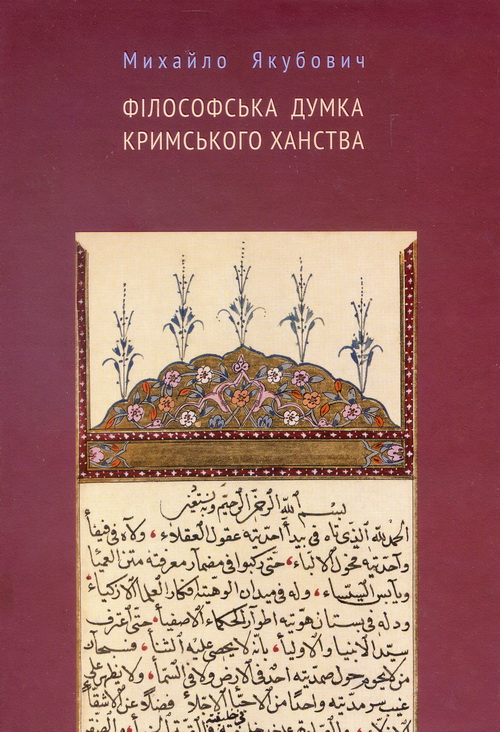 Михайло Якубович
ФІЛОСОФСЬКА ДУМКА
КРИМСЬКОГО ХАНСТВА
بسم الله الرحمن الرحيم وبه نستعين
الحمد لله الذي تاه في بيدأ احديته عقول العقلاء، وولاه في فيفأ
واحديته فحول الالباء، حتى ركبوا في مضمار معرفته متن العميا
وله في ميدان الوهيته افكار العلما الازكياء
ودله في بستان هويته اطوار الحكماء الاصفيأ، حتى اعترف
سيد الانبيا والاوليأ، بانه لا يحصى عليه الثنأ، فسبحان
من لا يحوم حول صمديته احد في الارض ولا في السمأ، ولا يظهر على
غيب سرمديته واحدا من الاحيا الاخلاء فضلا عن الاشقيا